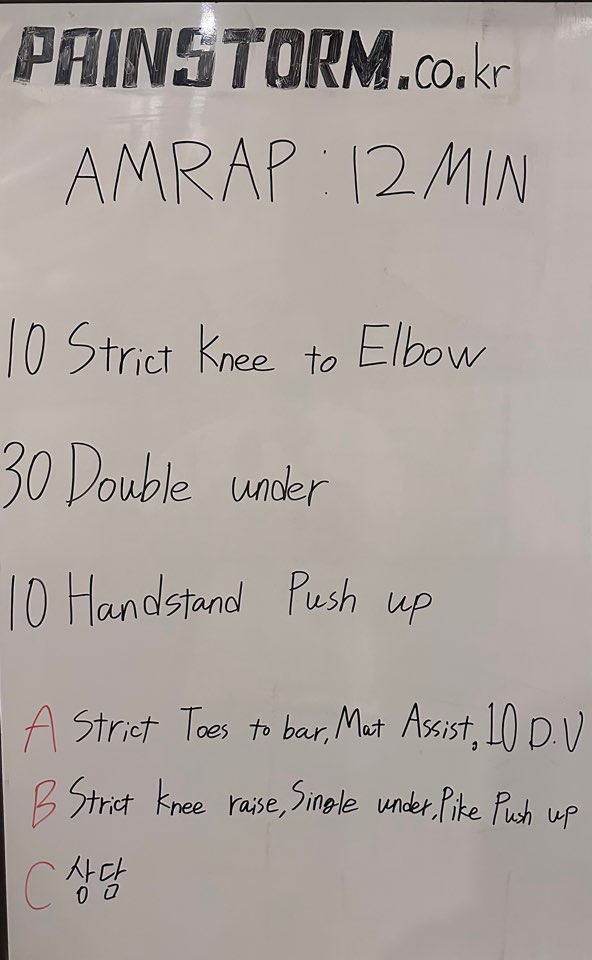 PAINSTORM.co.kr
AMRAP : 12 MIN
10 Strict Knee to Elbow
30 Double under
10 Handstand Push up
A Strict Toes to bar, Mat Assist, 10 D.U
B Strict knee raise, Single under, Pike Push up
C 상담